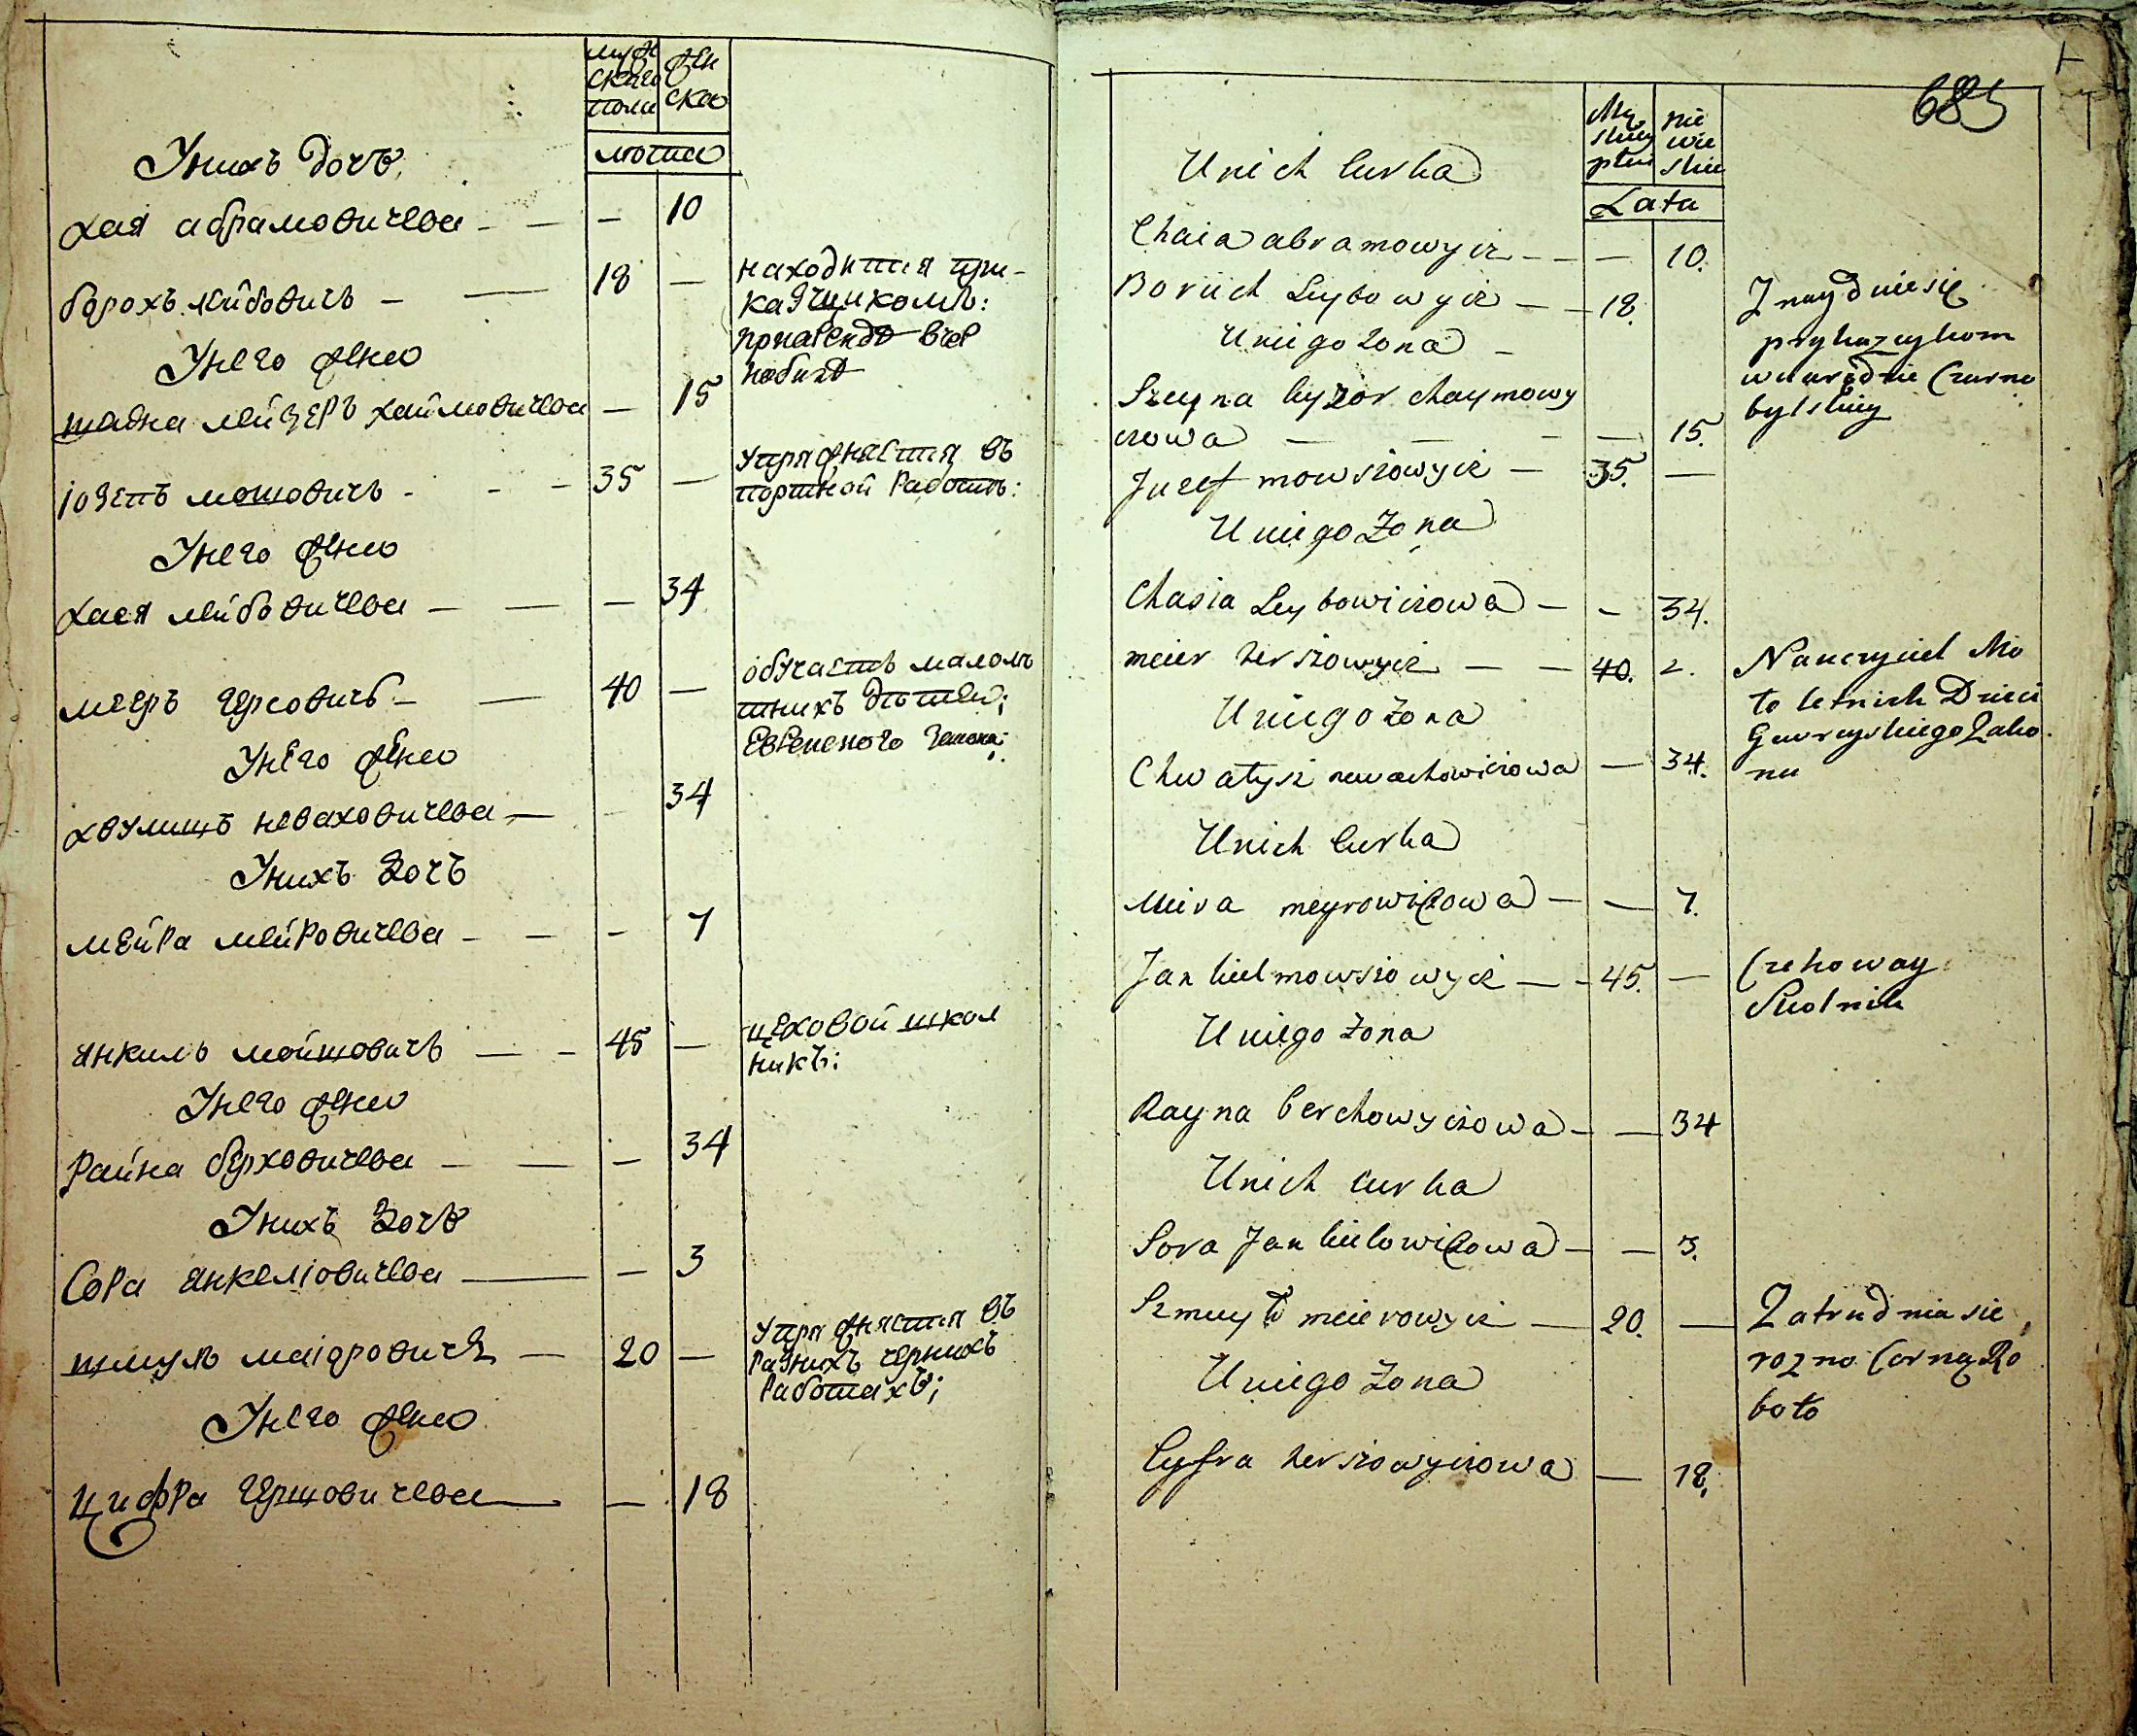 мужскаго полу
женска
люта
У нихъ дочь
хая абрамовичева - - - 10
борохъ лейбовичъ - - 18 -
находится при-
кащикомъ:
У него жена
шадна лейзеръ хаимовичева - 15
іозепъ мошовичъ - - - 35 -
упражняется въ
портной работь:
У него жена
хася лейбовичева - - - 34
мееръ герсовичъ - - 40 -
обучаетъ малолѣ
тнихъ дѣтей;
еврейского закона;
У него жена
хвулищъ неваховичева - 34
У нихъ дочъ
мейра мейровичева - - - 7
янкиль мойшовичъ - - 45 -
цеховой школ
никъ:
У него жена
райна берховичева - - - 34
У нихъ дочь
Сора янкеліовичева - - 3
шмуль маіоровичъ - 20 -
упражняется въ
разнихъ чернихъ
работахъ;
У него жена
цифра гершовичева - - 18
685
Męskiey płci
niewieskiey
Lata
Unich Curka
Chaia abramowycz - - - 10.
Boruch Leybowycz - - 18.
Znayduie się
prykazcykom
w Czarno
bylskiey
Uniego żona -
Szeyna leyzor chaymowy
czowa - - - - 15.
Juzef mowszowycz - 35. -
Uniego Żona
Chasia Leybowiczowa - - 34.
meier herszowycz - - 40. 2.
Nauczyciel Mo
to letnich Dzieci
Gewreyskiego Zako
nu
Uniego żona
Chwatysz newachowiczowa - 34.
Unich Curka
Meira meyrowiczowa - - 7.
Jankiel mowszowycz - - 45. -
Czehoway
Skolnik
Uniego żona
Rayna berchowyczowa - - 34
Unich Curka
Sora Jankielowiczowa - - 3.
Szmuyło meierowycz - 20. -
Zatrudnia sie
rozno Corną Ro
boto
Uniego żona
Cyfra herszowyczowa - 18.